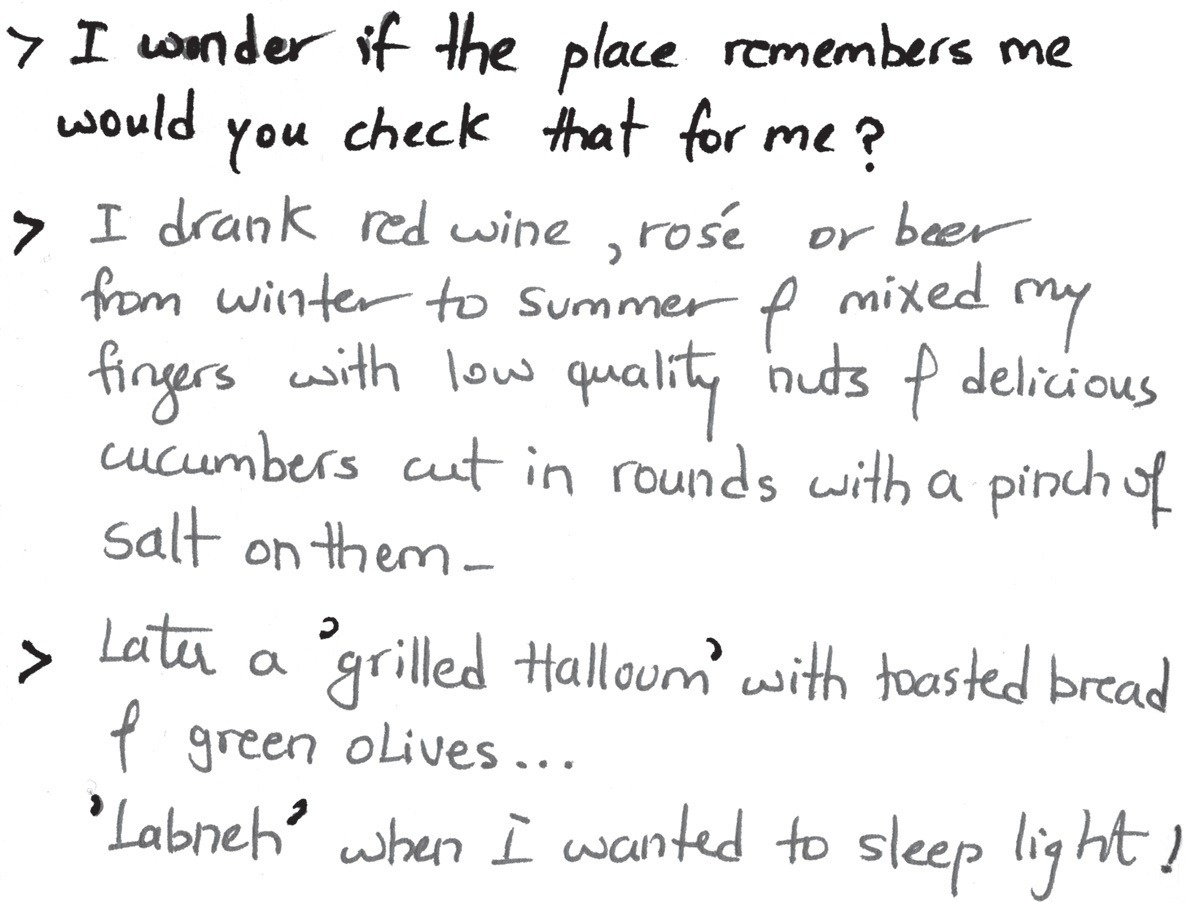 > I wonder if the place remembers me
would you check that for me?
> I drank red wine, rosé or beer
from winter to summer & mixed my
fingers with low quality nuts & delicious
cucumbers cut in rounds with a pinch of
salt on them –
> Later a 'grilled Halloum' with toasted bread
& green olives...
'Labneh' when I wanted to sleep light!